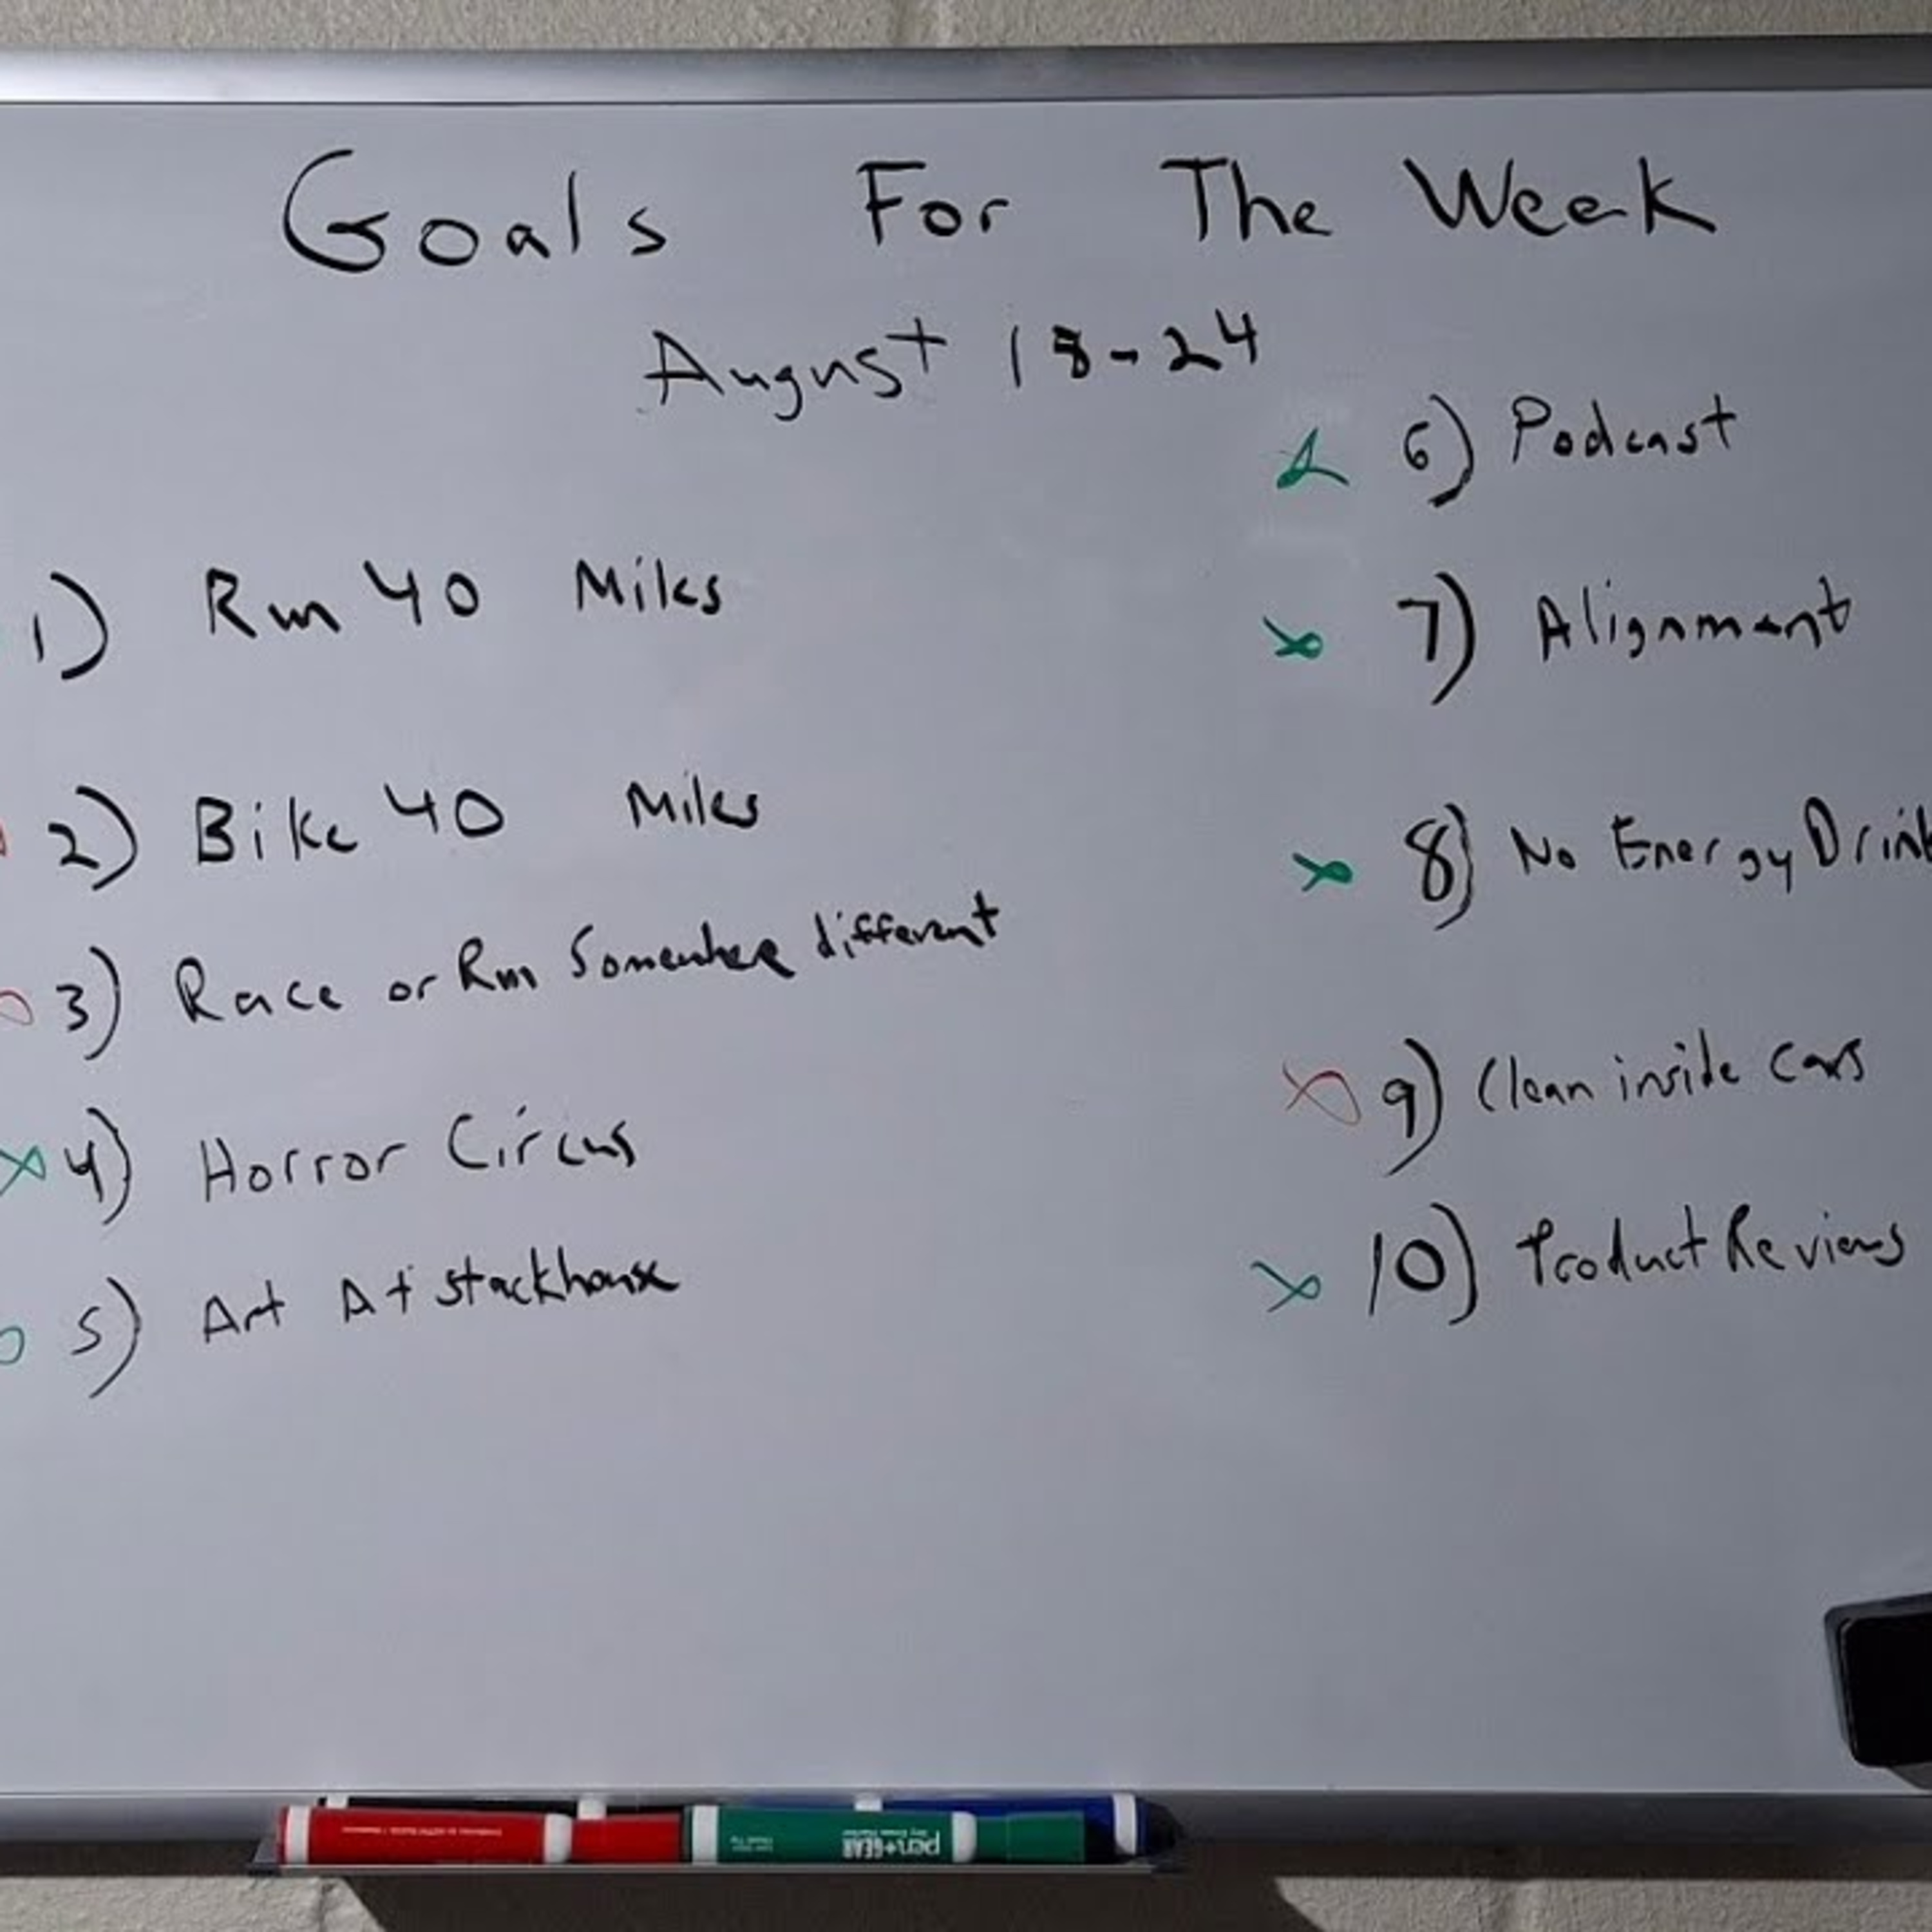 Goals For The Week
August 18-24
1) Run 40 Miles
2) Bike 40 Miles
3) Race or Run Somewhere different
4) Horror Circus
5) Art At stackhouse
6) Podcast
7) Alignment
8) No Energy Drink
9) Clean inside cars
10) Product Reviews
pen+GEAR